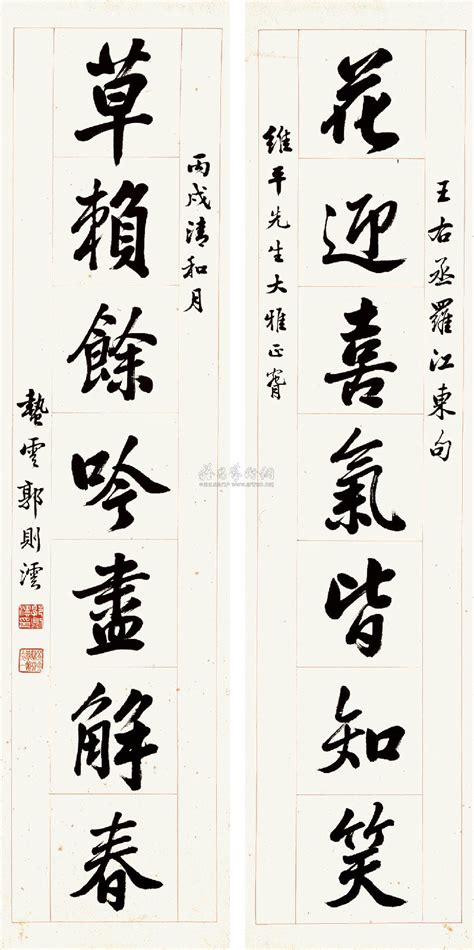 王右丞羅江東句
花迎喜氣皆知笑
維平先生大雅正肎
丙戌清和月
草賴餘吟盡解春
蟄雲郭則澐